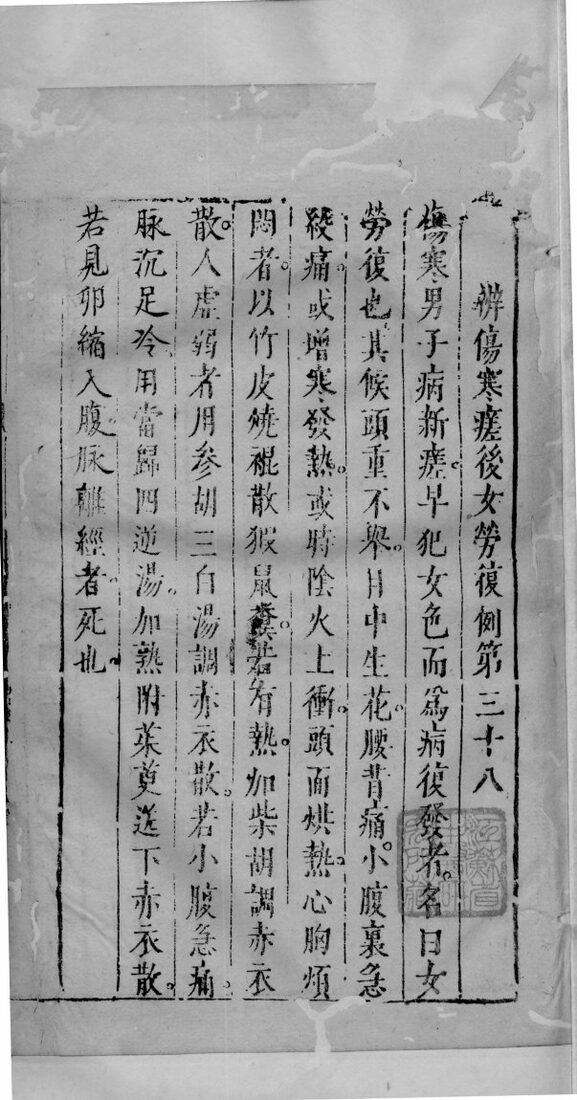 辨傷寒瘥後女勞復例第三十八
傷寒男子病新瘥。早犯女色而爲病復發者。名曰女
勞復也其候頭重不舉。目中生花。腰背痛。小腹裏急
絞痛。或增寒發熱。或時陰火上衝。頭面烘熱。心胸煩
悶者。以竹皮燒裩散猳鼠糞。若有熱。加柴胡調赤衣
散。人虛弱者用參胡三白湯調赤衣散。若小腹急痛。
脉沉足冷。用當歸四逆湯。加熟附茱萸送下赤衣散。
若見卵縮入腹脉離經者。死也。